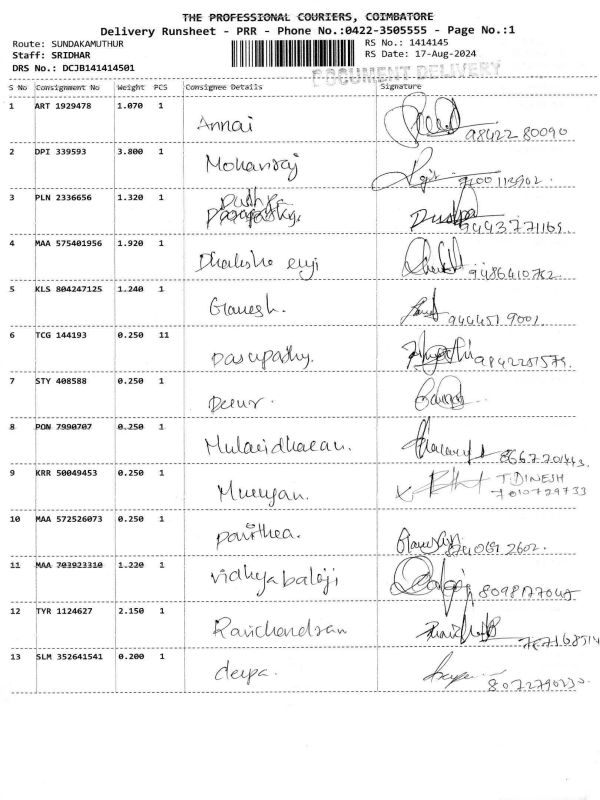 THE PROFESSIONAL COURIERS, COIMBATORE
Delivery Runsheet - PRR - Phone No.:0422-3505555 - Page No.:1
Route: SUNDAKAMUTHUR RS No.: 1414145
Staff: SRIDHAR RS Date: 17-Aug-2024
DRS No.: DCJB141414501
DOCUMENT DELIVERY
S No Consignment No Weight PCS Consignee Details Signature
1 ART 1929478 1.070 1 Annai 98422 80090
2 DPI 339593 3.800 1 Mohanraj
3 PLN 2336656 1.320 1 9443771165.
4 MAA 575401956 1.920 1 9486410762
5 KLS 804247125 1.240 1 Ganesh. 944451 9001.
6 TCG 144193 0.250 11 Dasapathy.
7 STY 408588 0.250 1
8 PON 7990707 0.250 1
9 KRR 50049453 0.250 1 Murugan. T. DINESH
7010729733
10 MAA 572526073 0.250 1 Pavithea.
11 MAA 703923310 1.220 1 vidhyabalaji
12 TYR 1124627 2.150 1 Ravichandran
13 SLM 352641541 0.200 1 deepa. 8072790230.